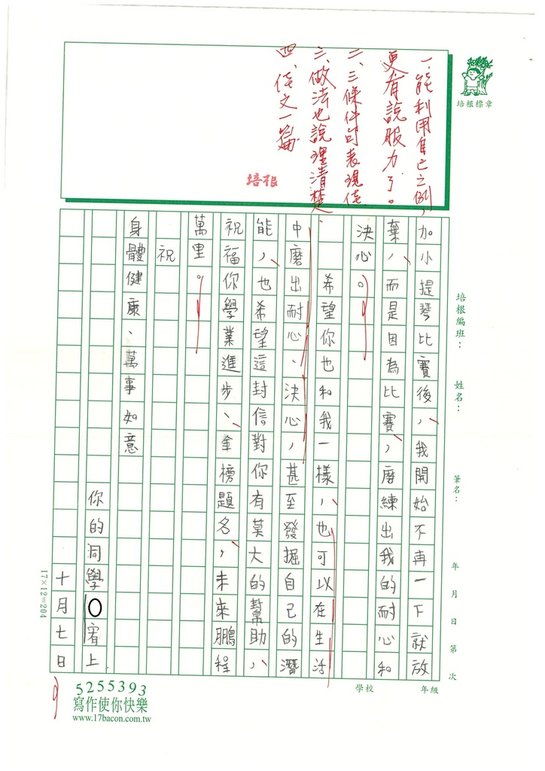 一、能利用自己之例，
更有說服力了。
二、三條件句表現佳
三、做法也說理清楚
四、佳文一篇
培根
培根標章
培根編班：
姓名：
筆名：
年 月 日 第 次
加小提琴比賽後，我開始不再一下就放
棄，而是因為比賽，磨練出我的耐心和
決心。
希望你也和我一樣，也可以在生活
中磨出耐心、決心，甚至發掘自己的潛
能，也希望這封信對你有莫大的幫助，
祝福你學業進步、金榜題名，未來鵬程
萬里。
祝
身體健康、萬事如意
你的同學○宥上
十月七日
17×12=204
學校
年級
5255393
寫作使你快樂
www.17bacon.com.tw